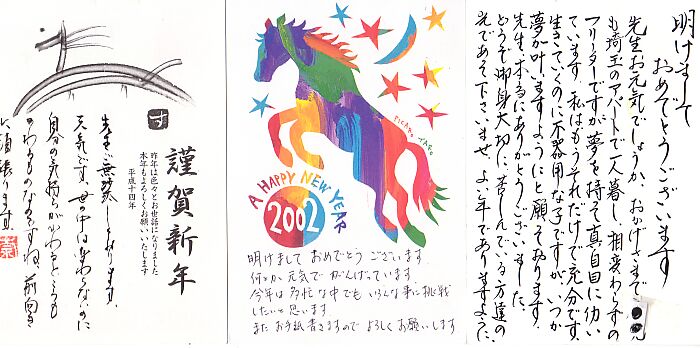 す
謹賀新年
昨年は色々とお世話になりました
本年もよろしくお願いいたします
平成十四年
先生ご無沙汰しております。
元気です。世の中は変わらないのに
自分の気持ちがかわるとこうも
かわるものなんですね。前向き
頑張ります。
FIGARO TARO
A HAPPY NEW YEAR
2002
明けまして おめでとう ございます。
何とか元気で がんばっています。
今年は多忙な中でも いろんな事に挑戦
したいと思います
また お手紙書きますので よろしくお願いします
明けまして
おめでとうございます
先生お元気でしょうか。おかげさまで
も埼玉のアパートで一人暮し、相変わらずの
フリーターですが夢を持って真面目に仂い
ています。私はもうそれだけで充分です。
生きていくのに不器用な子ですが、いつか
夢が叶いますようにと願っております。
先生、本当にありがとうございました。
どうぞ御身大切に、苦しんでいる方達の
光であって下さいませ。よい年でありますように。